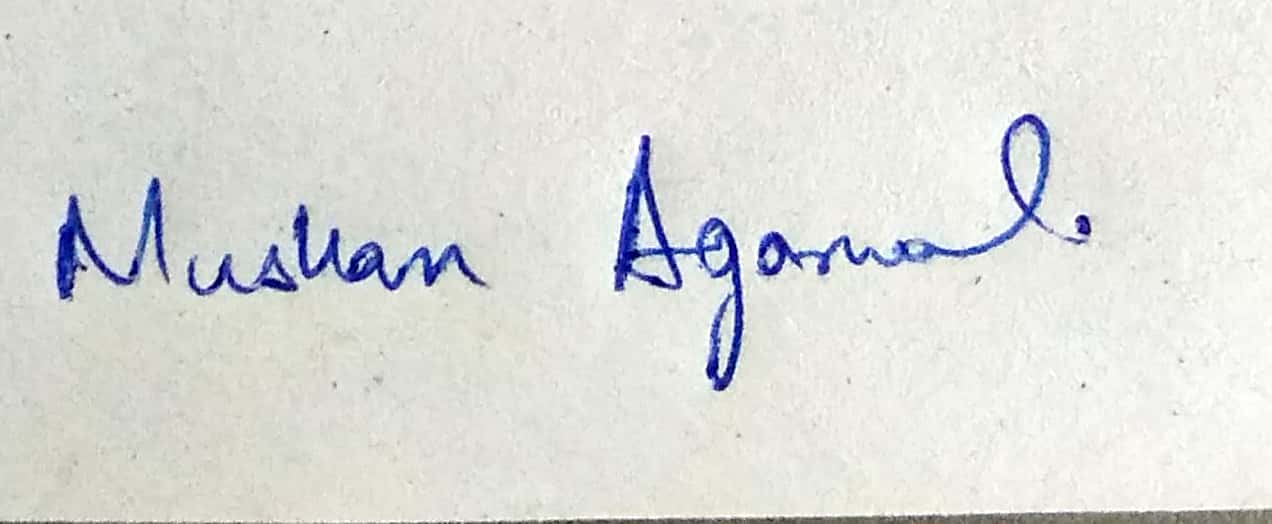 Muskan Agarwal.